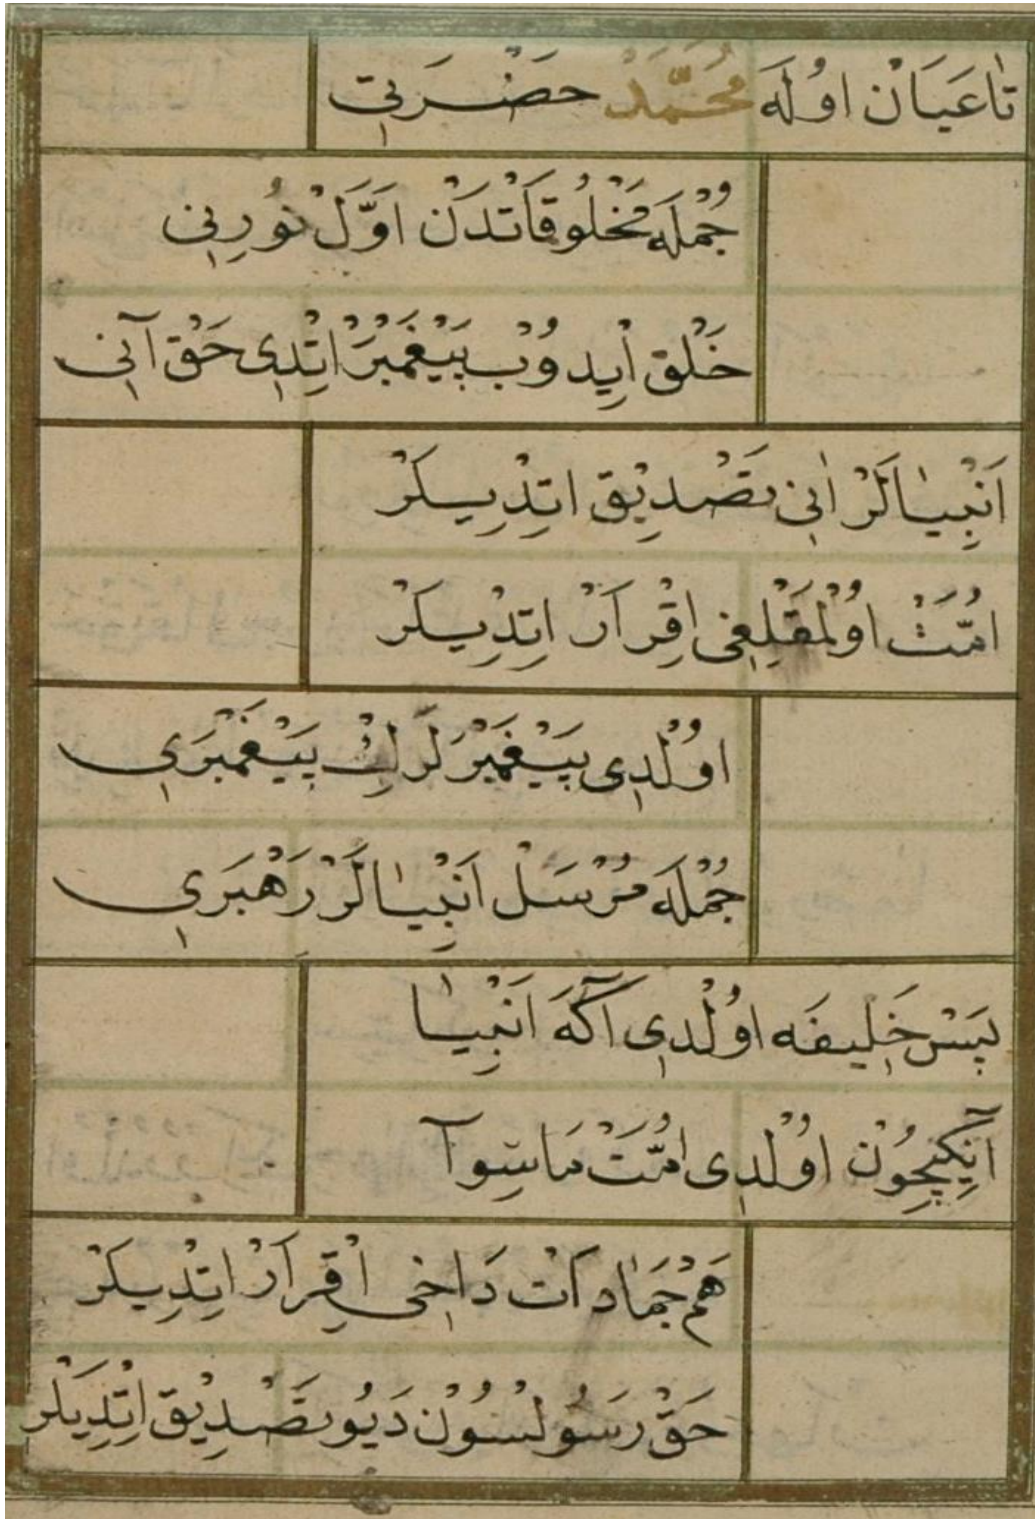 تَا عَيَانْ اوُلَهَ مُحَمَّدْ حضْرَتِي
جُمْلَه مَخْلُوقَاتْدَنْ اَوَّلْ نُورِنِي
خَلْق اِيدوُبْ پَيْغَمْبَرْ اِتْدِي حَقْ آنِي
اَنْبِيَالَرْ اَنِي تَصْدِيْق اتِدْيلَرْ
امَّتْ اوُلْمَقْلِغِي اِقْرَارْ اِتِدْيلَرْ
اوُلْدِي پَيْغَمْبَرْلَرِكْ پَيْغَمْبَرِي
جُمْلَه مُرْسَلْ اَنْبِيَالَرْ رَهْبَرِي
پَسْ خَلِيفَه اوُلْدِي آكَهَ اَنْبِيَا
آنِكِيچُونْ اوُلْدِي امَّتْ مَاسِوَآ
هَمْ جَمَادَاتْ دَاخِي اِقْرَارْ اِتِدْيلَرْ
حَقْ رَسُولْسُونْ دَيُو تَصْدِيْق اِتِدْيلَرْ